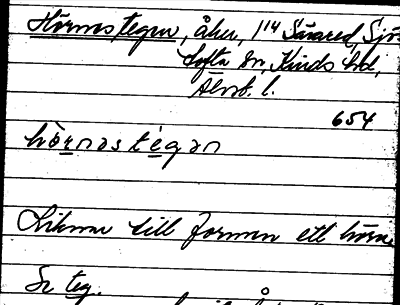 Hörnastegen, åker, 1/4 Svared, Sjö
tofta sn, Kinds hd,
Älvsb. l.
654
hö̀rnastegan
Liknar till formen ett hörn
Se teg.